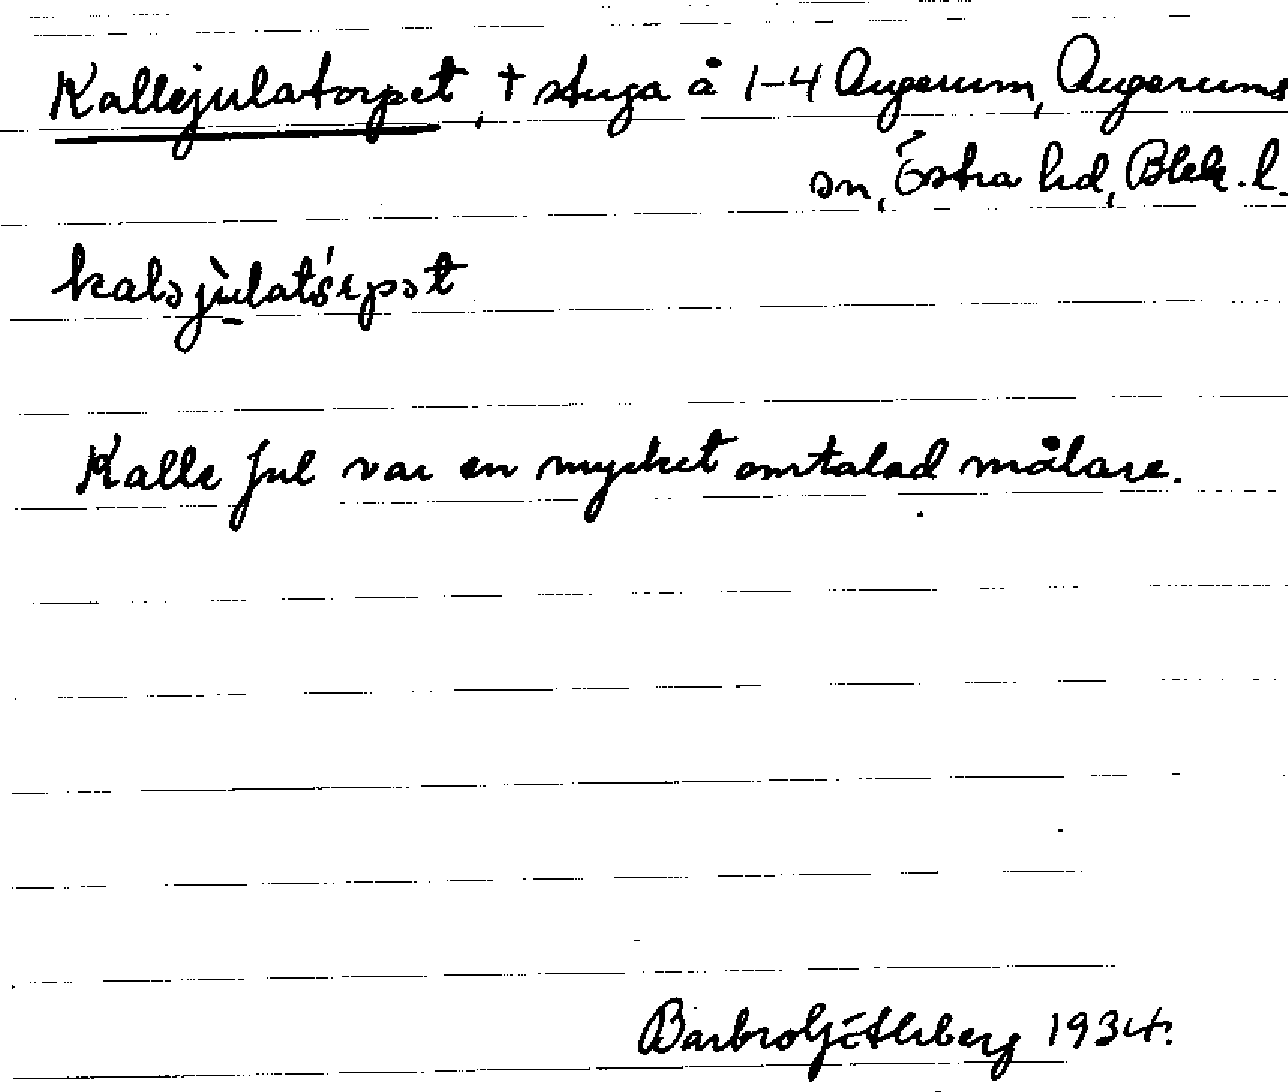 Kallejulatorpet, † stuga å 1-4 Augerum, Augerums
sn, Östra hd, Blek. l.
Kalle Jul var en mycket omtalad målare.
Barbro Götherberg 1934.